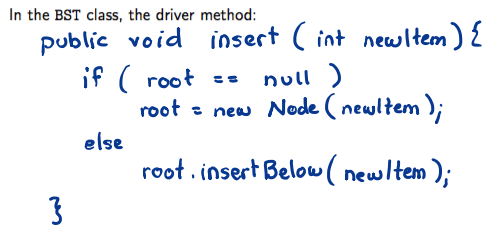 In the BST class, the driver method:
public void insert ( int newItem ) {
if ( root == null )
root = new Node ( newItem );
else
root . insertBelow ( newItem );
}